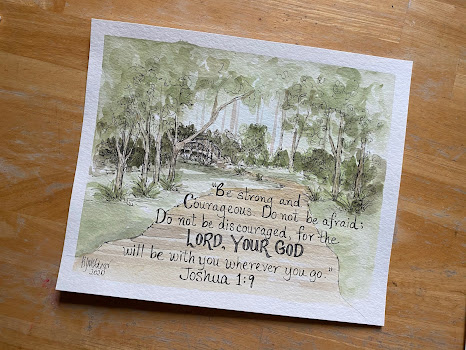 "Be strong and
Courageous. Do not be afraid;
Do not be discouraged, for the
LORD, YOUR GOD
will be with you wherever you go."
Joshua 1:9
2020